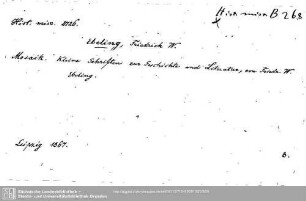 Hist. misc. B 263
Hist. misc. 1726.
Ebeling, Friedrich W.
Mosaik. Kleine Schriften zur Geschichte und Literatur, von Friedr. W.
Ebeling.
Leipzig 1867.
8.
Sächsische Landesbibliothek -
Staats- und Universitätsbibliothek Dresden